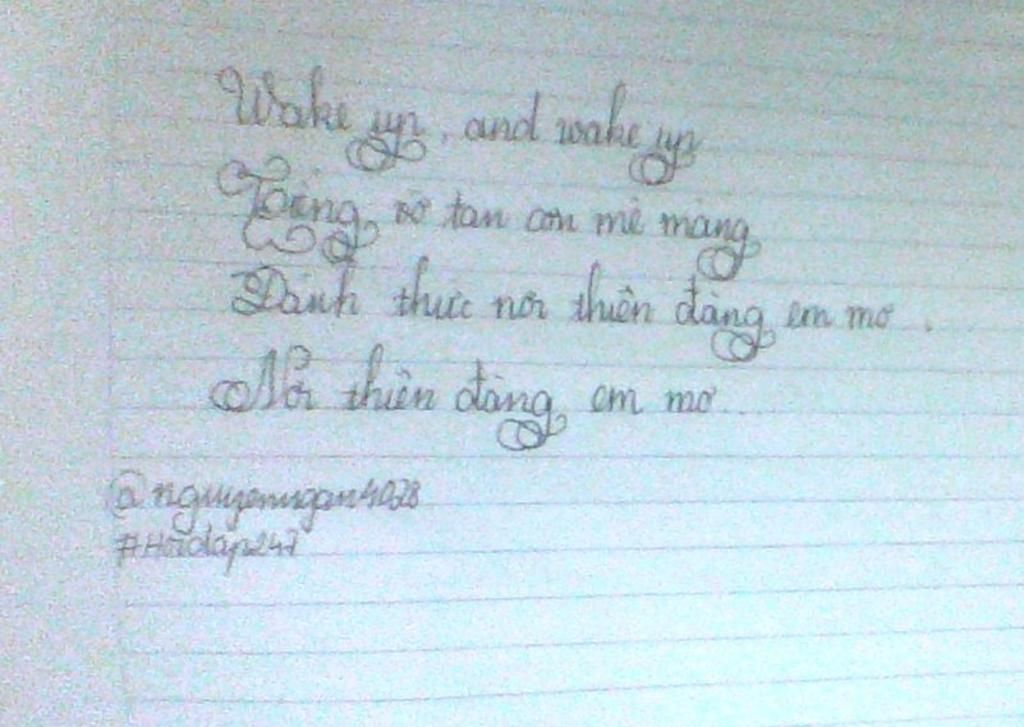 Wake up, and wake up
Tiếng vỡ tan cơn mê màng
Đánh thức nơi thiên đàng em mơ.
Nơi thiên đàng em mơ..
@nguyenngan4028
#Hoidap247